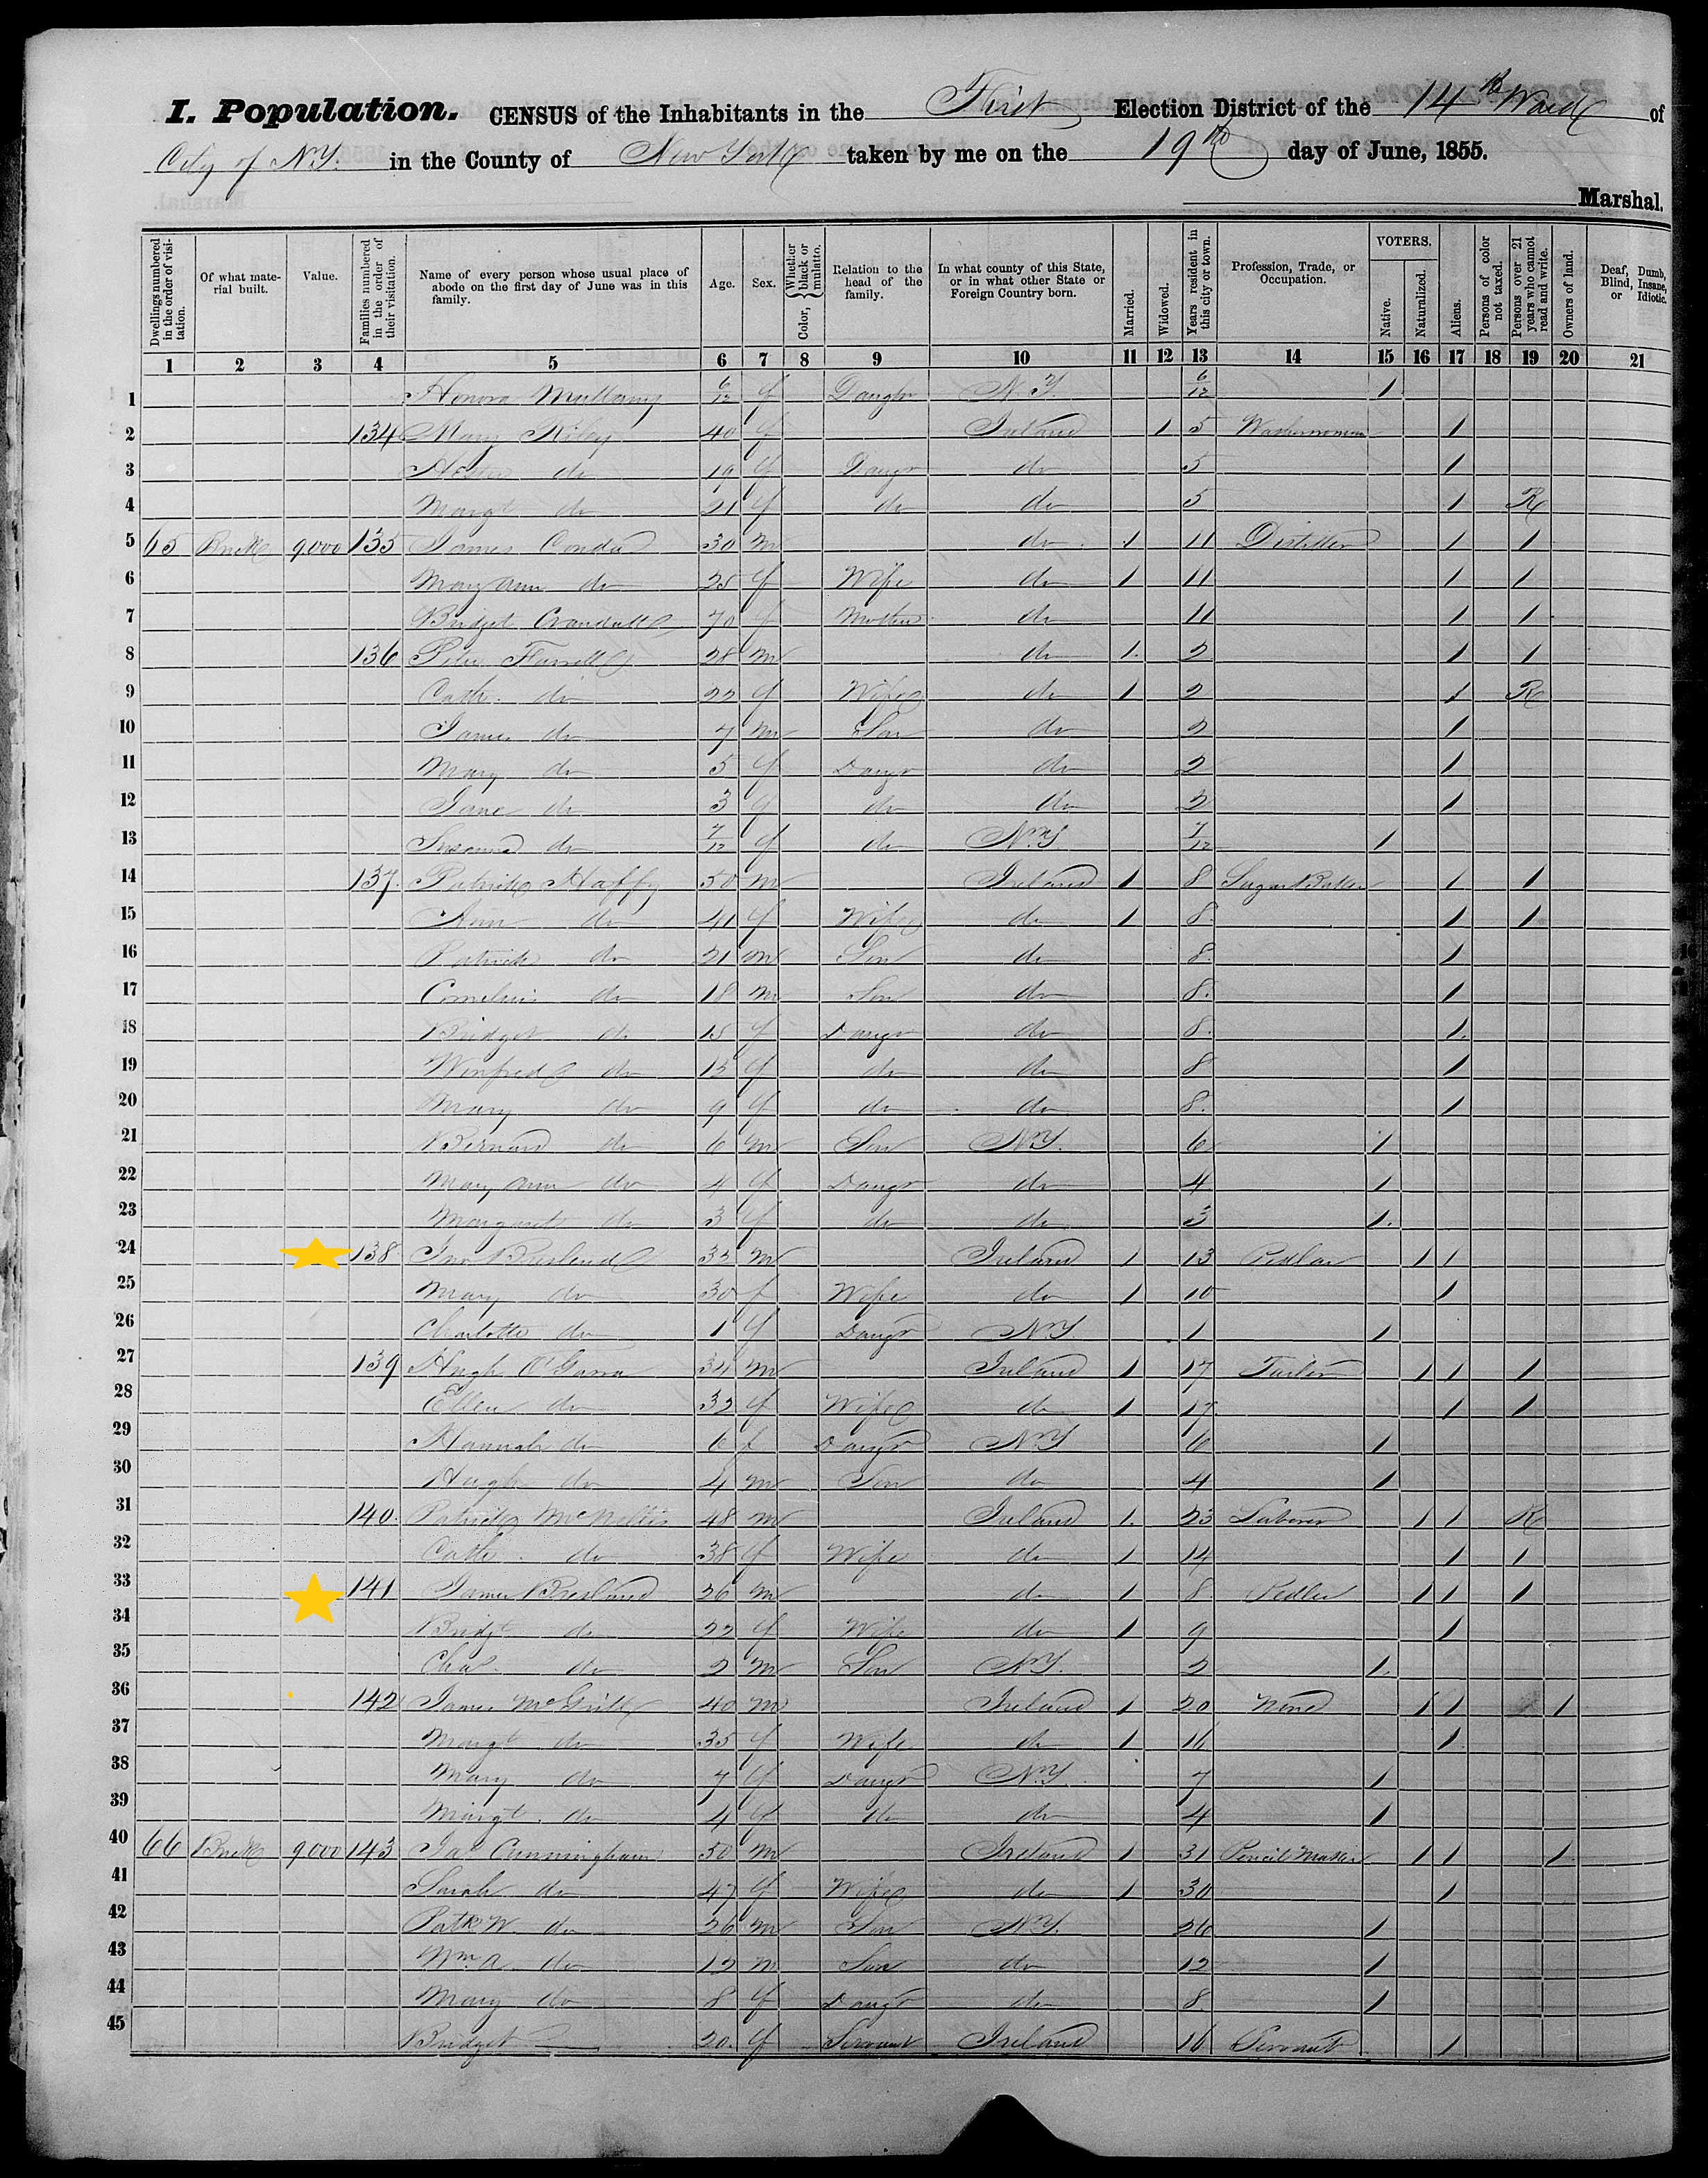 I. Population. CENSUS of the Inhabitants in the First Election District of the 14th Ward of
City of N.Y. in the County of New York taken by me on the 19th day of June, 1855.
Marshal.
Dwellings numbered in the order of visi-tation. Of what mate-rial built. Value. Families numbered in the order of their visitation. Name of every person whose usual place of abode on the first day of June was in this family. Age. Sex. Color, Whether black or mulatto. Relation to the head of the family. In what county of this State, or in what other State or Foreign Country born. Married. Widowed. Years resident in this city or town. Profession, Trade, or Occupation. VOTERS. Native. Naturalized. Aliens. Persons of color not taxed. Persons over 21 years who cannot read and write. Owners of land. Deaf, Dumb, Blind, Insane, or Idiotic.
1 2 3 4 5 6 7 8 9 10 11 12 13 14 15 16 17 18 19 20 21
1 Honora 6/12 f Daughr N.Y. 6/12 1
2 134 Mary Riley 40 f Ireland 1 5 Washerwoman 1
3 do 19 f Daugr do 5 1
4 Margt do 21 f do do 5 1 R
5 65 Brick 9000 135 James 30 m do 1 11 Distiller 1 1
6 Mary Ann do 25 f Wife do 1 11 1 1
7 Bridget 70 f Mother do 11 1 1
8 136 Peter Farrell 28 m do 1 2 1 1
9 Cath. do 22 f Wife do 1 2 1 R
10 James do 7 m Son do 2 1
11 Mary do 5 f Daugr do 2 1
12 Jane do 3 f do do 2 1
13 Susanna do 7/12 f do N.Y. 7/12 1
14 137. Patrick Haffy 50 m Ireland 1 8 Sugar Baker 1 1
15 Ann do 41 f Wife do 1 8. 1 1
16 Patrick do 21 m Son do 8. 1
17 Cornelius do 18 m Son do 8. 1
18 Bridget do 15 f Daugr do 8. 1.
19 Winfred do 13 f do do 8 1
20 Mary do 9 f do do 8. 1
21 Bernard do 6 m Son N.Y. 6 1
22 Mary Ann do 4 f Daugr do 4 1
23 Margaret do 3 f do do 3 1.
24 138 Jno Breslend 35 m Ireland 1 13 Pedlar 1 1
25 Mary do 30 f Wife do 1 10 1
26 Charlotte do 1 f Daugr N.Y 1 1
27 139 Hugh O'Garra 34 m Ireland 1 17 Tailor 1 1 1
28 Ellen do 32 f Wife do 1 17 1 1
29 Hannah do 6 f Daugr N.Y 6 1
30 Hugh do 4 m Son do 4 1
31 140. Patrick 48 m Ireland 1. 23 Laborer 1 1 R
32 Cath. do 38 f Wife do 1 14 1 1
33 141 James Bresland 26 m do 1 8. Pedler 1 1 1
34 Bridgt do 22 f Wife do 1 9 1
35 Chas. do 2 m Son N.Y. 2 1.
36 142 James 40 m Ireland 1 20 None 1 1 1
37 Margt do 35 f Wife do 1 16 1
38 Mary do 7 f Daugr N.Y. 7 1
39 Margt. do 4 f do do 4 1
40 66 Brick 9000 143 Jas Cunningham 50 m Ireland 1 31 Pencil Maker 1 1 1
41 Sarah do 47 f Wife do 1 30 1
42 Patk W. do 26 m Son N.Y. 26 1
43 Wm A. do 12 m Son do 12 1
44 Mary do 8 f Daugr do 8 1
45 Bridget 20. f Servant Ireland 16 Servant 1